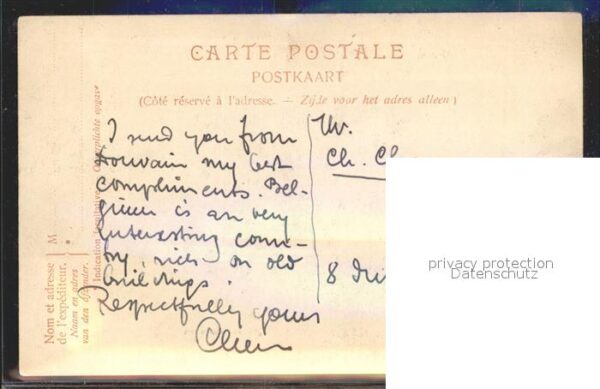 CARTE POSTALE
POSTKAART
(Côté réservé à l'adresse. — Zijde voor het adres alleen)
I send you from
Louvain my best
compliments. Bel-
gium is an very
interesting coun-
try, rich on old
buildings.
Respectfully yours
Mr.
Ch.
8
Nom et adresse
de l'expéditeur.
Naam en adres
van den afzender.
M
Indication facultative. Onverplichte opgave
privacy protection
Datenschutz